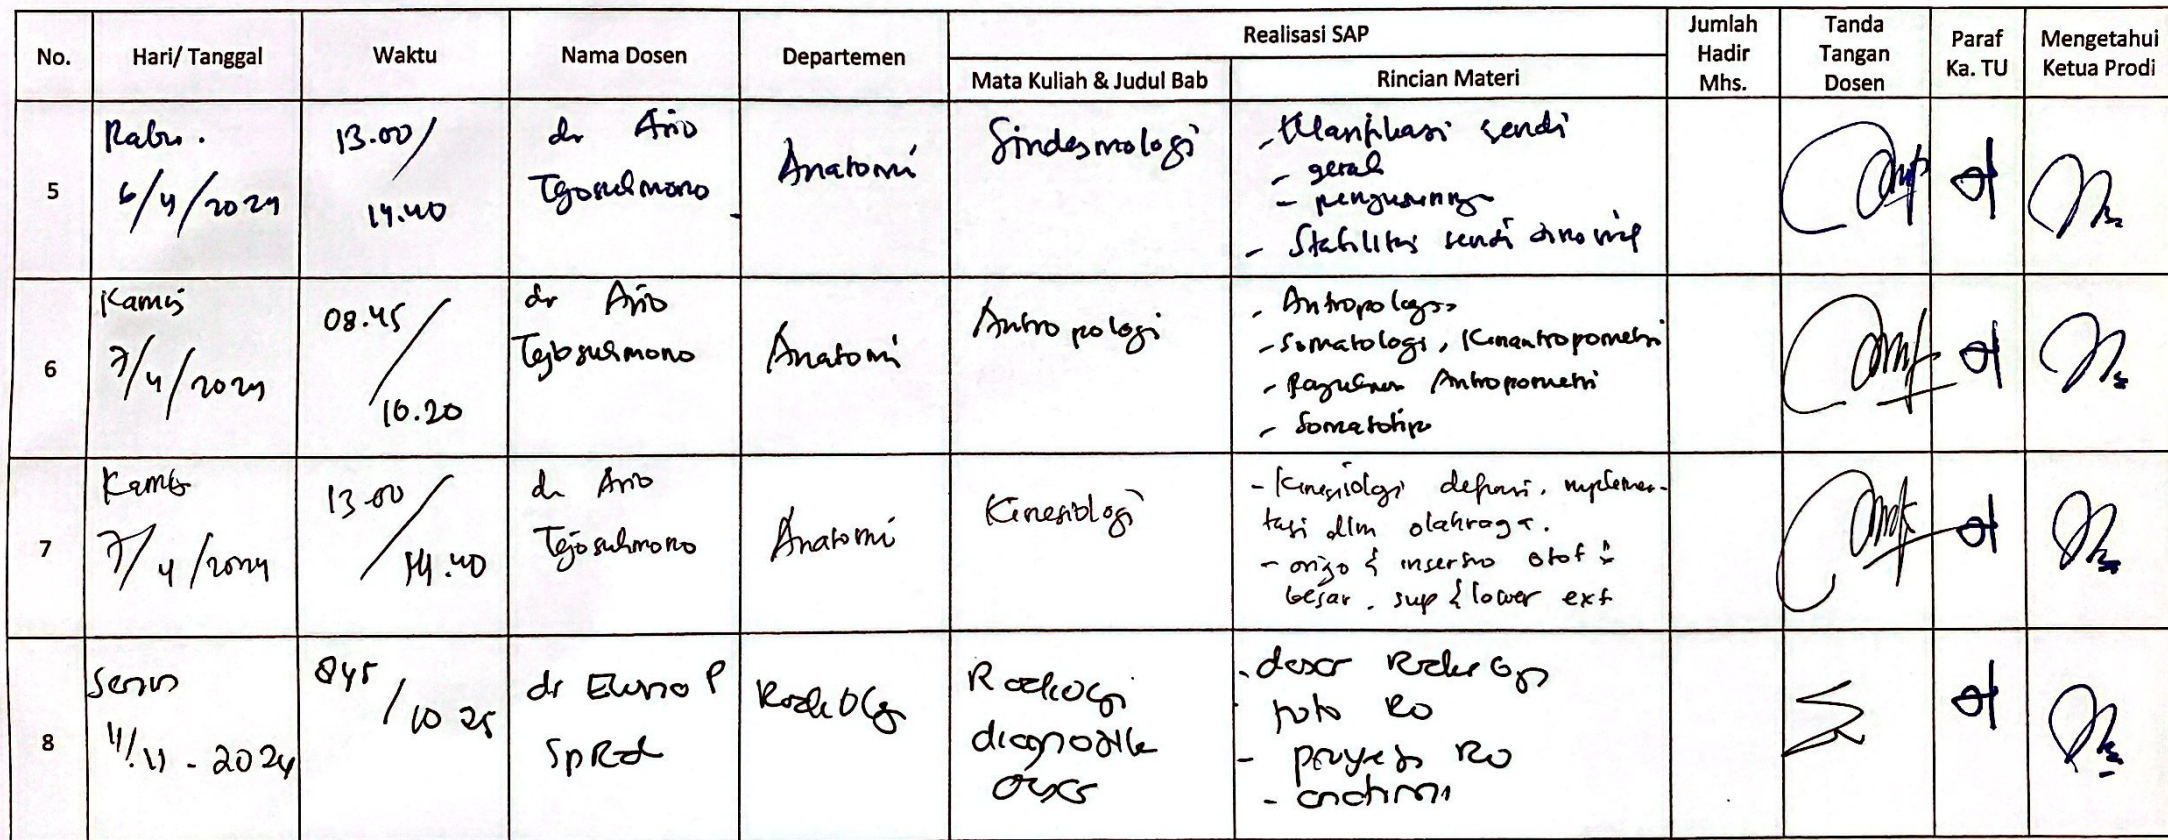 No. Hari/ Tanggal Waktu Nama Dosen Departemen Realisasi SAP Jumlah Hadir Mhs. Tanda Tangan Dosen Paraf Ka. TU Mengetahui Ketua Prodi
Mata Kuliah & Judul Bab Rincian Materi
5
Rabu.
6/4/2024
13.00/
14.40
dr Ario
Tejosukmono
Anatomi
Sindesmologi
- Klasifikasi sendi
- gerak
- Stabilitas sendi
6
Kamis
7/4/2024
08.45/
10.20
dr Ario
Tejosukmono
Anatomi
Antropologi
- Antropologi
- Somatologi, Kinantropometri
- Antropometri
- Somatotip
7
Kamis
7/4/2024
13.00/
14.40
dr Ario
Tejosukmono
Anatomi
Kinesiologi
- Kinesiologi definisi, implemen-
tasi dlm olahraga.
- origo & insersio otot
besar. sup & lower ext
8
Senin
11/11 - 2024
845/
10 25
dr P
SpRad
Radiologi
Radiologi
diagnostik
dasar
- dasar Radiologi
foto Ro
- proyeksi Ro
- anatomi